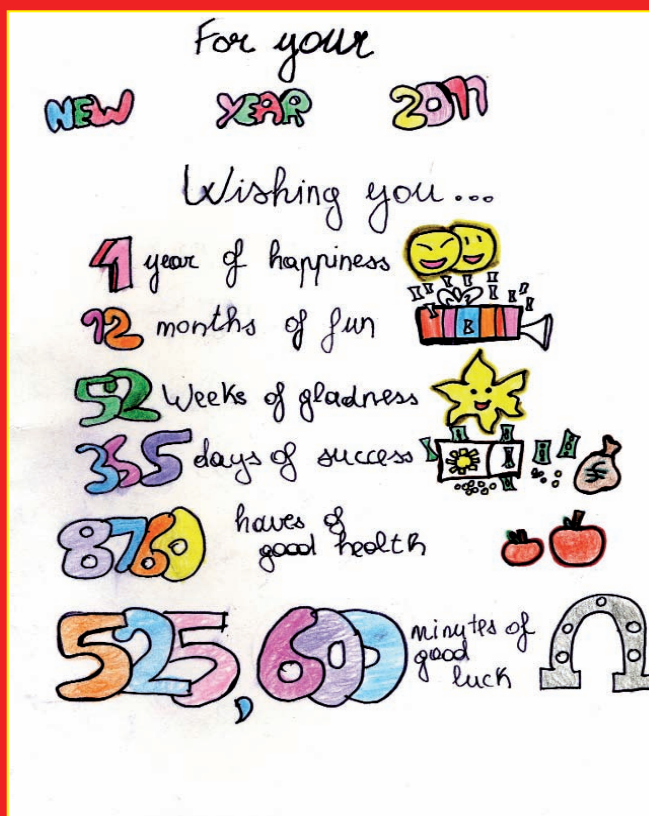 For your
NEW YEAR 2011
Wishing you...
1 year of happiness
12 months of fun
52 Weeks of gladness
355 days of success
8760 haves of
good health
525,600 minutes of
good
luck